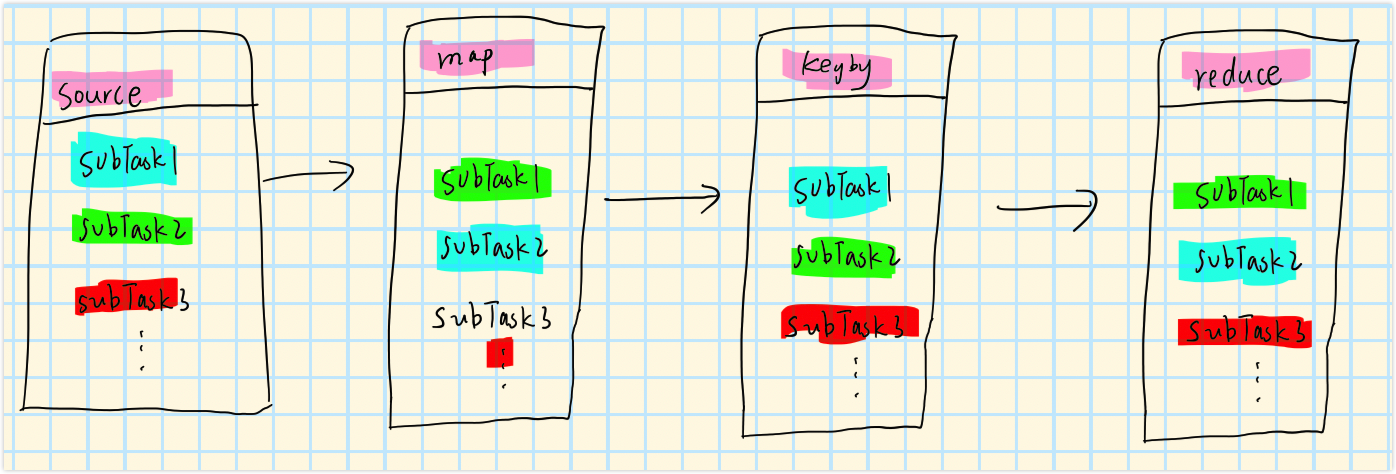 source
subTask1
subTask2
subTask3
map
subTask1
subTask2
subTask3
keyby
subTask1
subTask2
subTask3
reduce
subTask1
subTask2
subTask3